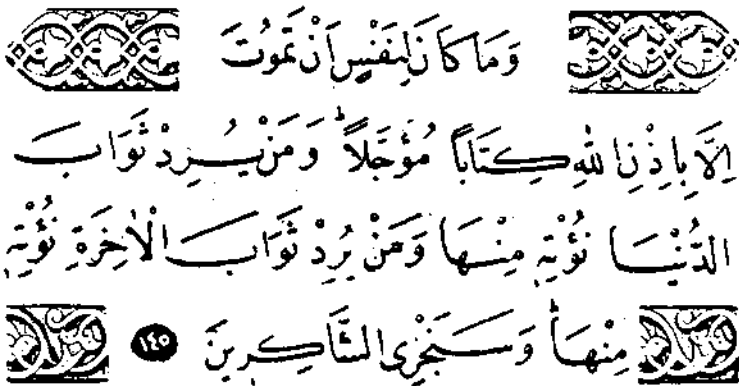 وَمَا كَانَ لِنَفْسٍ اَنْ تَمُوتَ
اِلَّا بِاِذْنِ اللهِ كِتَابًا مُؤَجَّلاًۜ وَمَنْ يُرِدْ ثَوَابَ
الدُّنْيَا نُؤْتِهِ مِنْهَا وَمَنْ يُرِدْ ثَوَابَ الْاٰخِرَةِ نُؤْتِهِ
مِنْهَاۜ وَسَنَجْزِى الشَّاكِرِينَ ١٤٥